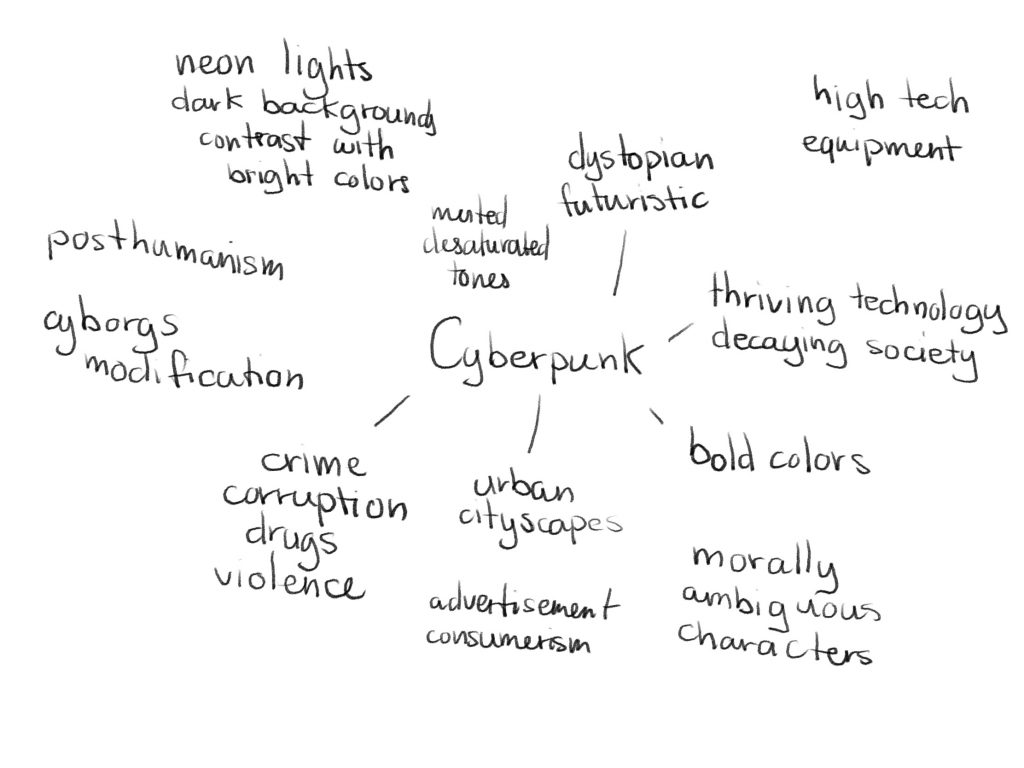 neon lights
dark background
contrast with
bright colors
high tech
equipment
dystopian
futuristic
muted
desaturated
tones
posthumanism
cyborgs
modification
thriving technology
decaying society
Cyberpunk
bold colors
crime
corruption
drugs
violence
urban
cityscapes
morally
ambiguous
characters
advertisement
consumerism